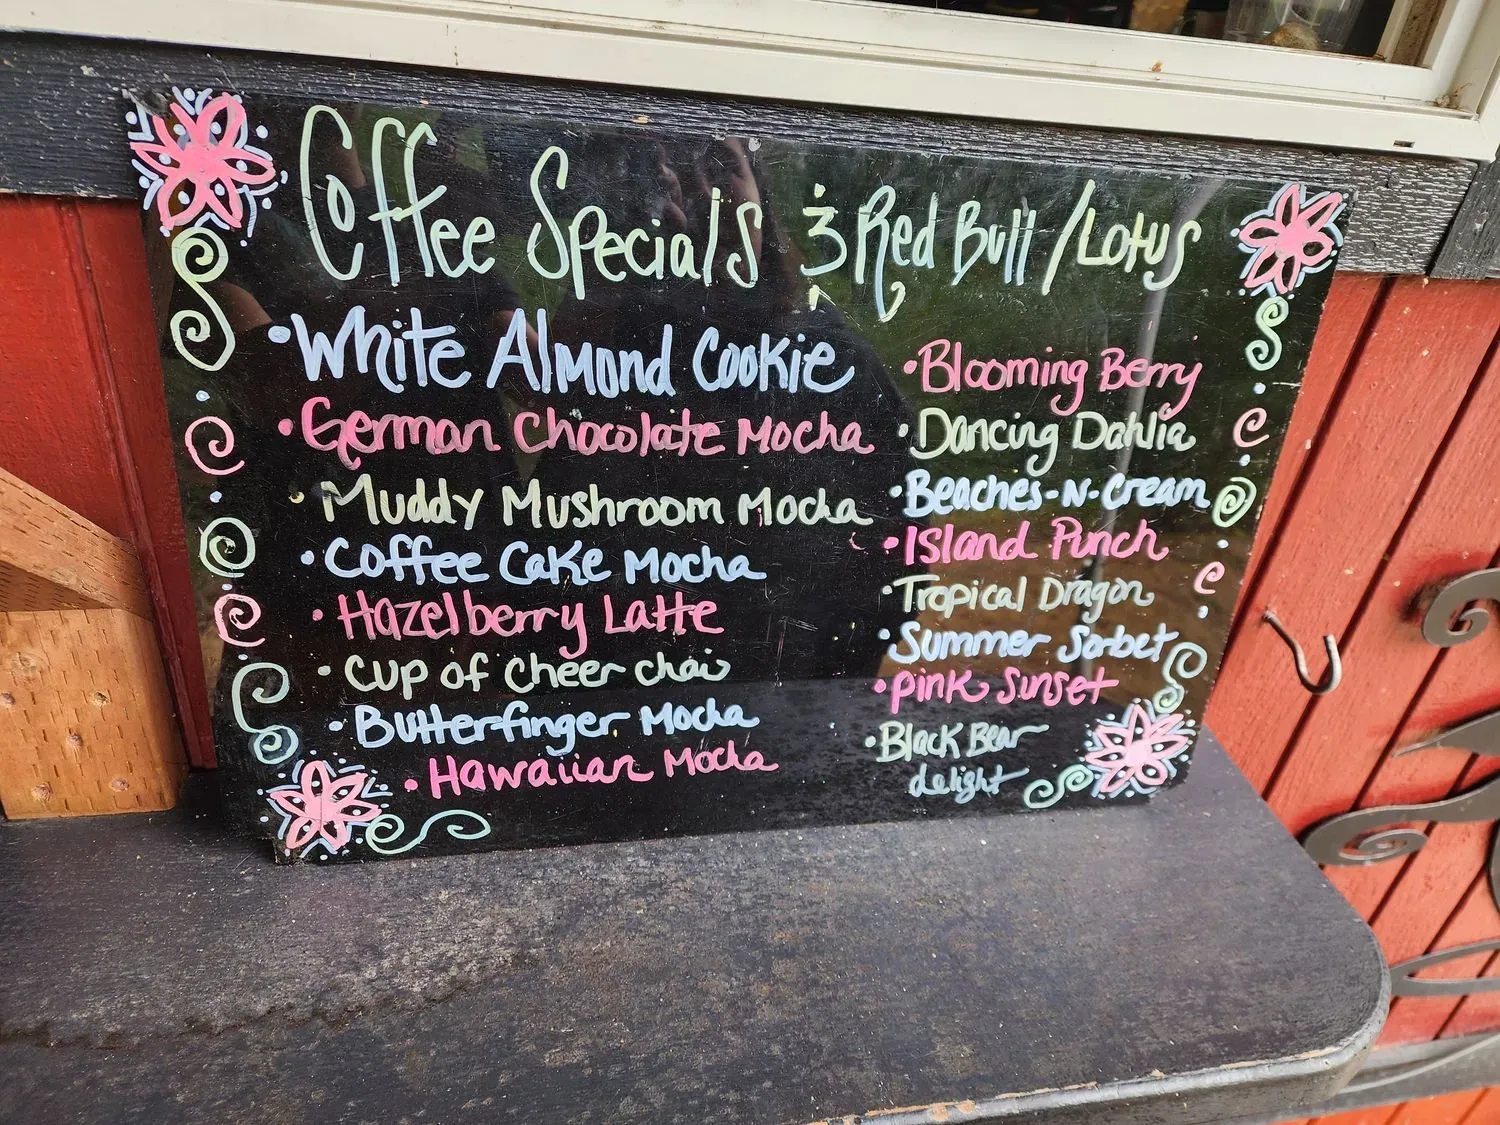 Coffee Specials & Red Bull/Lotus
• White Almond Cookie
• German Chocolate Mocha
• Muddy Mushroom Mocha
• Coffee Cake Mocha
• Hazelberry Latte
• Cup of Cheer chai
• Butterfinger Mocha
• Hawaiian Mocha
• Blooming Berry
• Dancing Dahlia
• Beaches-N-Cream
• Island Punch
• Tropical Dragon
• Summer Sorbet
• Pink Sunset
• Black Bear
delight